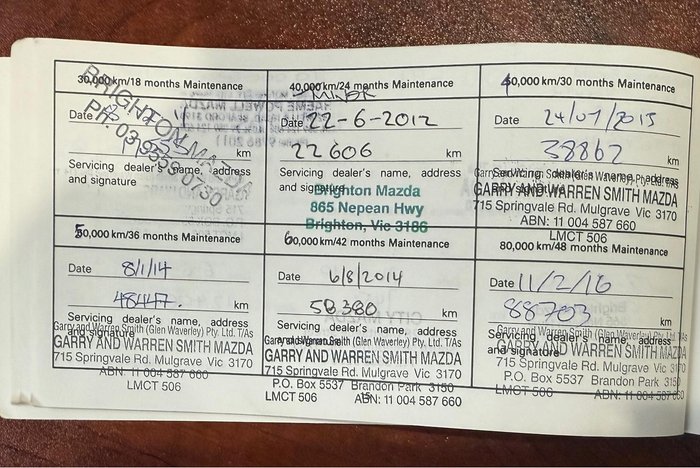 30,000 km/18 months Maintenance
Date
km
Servicing dealer's name, address
and signature
BRIGHTON MAZDA
PH. 03 9559 0730
40,000 km/24 months Maintenance
MINOR
Date 22-6-2012
22606 km
Servicing dealer's name, address
and signature
Brighton Mazda
865 Nepean Hwy
Brighton, Vic 3186
40,000 km/30 months Maintenance
Date 24/07/2013
38862 km
Servicing dealer's name, address
and signature
Garry and Warren Smith (Glen Waverley) Pty. Ltd. T/As
GARRY AND WARREN SMITH MAZDA
715 Springvale Rd. Mulgrave Vic 3170
ABN: 11 004 587 660
LMCT 506
50,000 km/36 months Maintenance
Date 8/1/14
48447. km
Servicing dealer's name, address
and signature
Garry and Warren Smith (Glen Waverley) Pty. Ltd. T/As
GARRY AND WARREN SMITH MAZDA
715 Springvale Rd. Mulgrave Vic 3170
ABN: 11 004 587 660
LMCT 506
60,000 km/42 months Maintenance
Date 6/8/2014
58380 km
Servicing dealer's name, address
and signature
Garry and Warren Smith (Glen Waverley) Pty. Ltd. T/As
GARRY AND WARREN SMITH MAZDA
715 Springvale Rd. Mulgrave Vic 3170
P.O. Box 5537 Brandon Park 3150
LMCT 506 ABN: 11 004 587 660
15
80,000 km/48 months Maintenance
Date 11/2/16
88703 km
Servicing dealer's name, address
and signature
Garry and Warren Smith (Glen Waverley) Pty. Ltd. T/As
GARRY AND WARREN SMITH MAZDA
715 Springvale Rd. Mulgrave Vic 3170
P.O. Box 5537 Brandon Park 3150
LMCT 506 ABN: 11 004 587 660